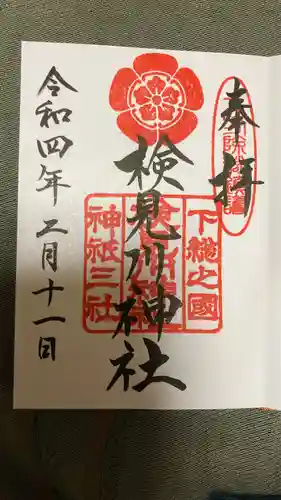 奉拝
検見川神社
下総之國
神祇三社
令和四年二月十一日